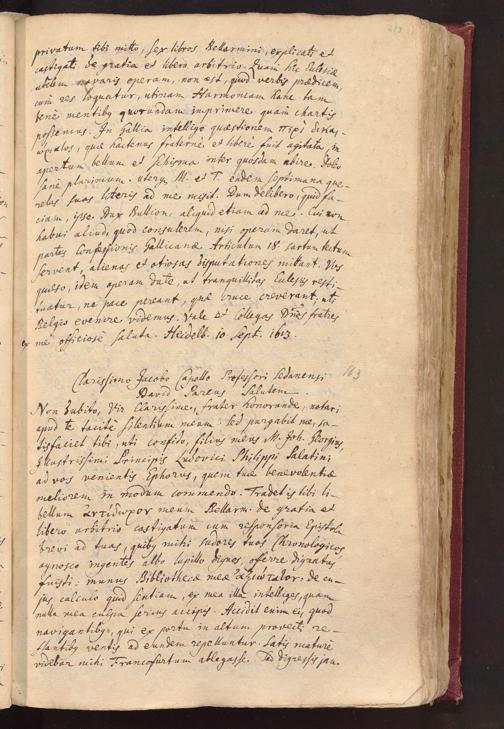 privatum tibi mitto, sex libros Bellarmini, explicati et
castigati de gratia et libero arbitrio. Quam hic Ecclesiæ
utilem navaris operam, non est, quod verbis prædicem,
cum res loquatur, utinam Harmoniam hanc tam
bene mentibus quorundam imprimere quam chartis
possemus. In Gallia intelligo quæstionem περὶ δικαι-
quæ hactenus fraternè et liberè fuit agitata, in
apertum bellum et schisma inter quosdam abire. Doleo
sanè plurimum. uterque M. et T. eadem septimana que-
relas suas literis ad me misit. Dum delibero, quid fa-
ciam, ipse Dux Bullion. aliquid etiam ad me. Cui non
habui aliud, quod consulerem, nisi operam daret, ut
partes Confessionis Gallicanæ Articulum 18. sartum tectum
servent, alienas et otiosas disputationes mittant. Vos
quæso, idem operam date, ut tranquillitas Eclesiis resti-
tuatur, ne pace pereant, quæ cruce creverant, uti
Belgio evenire videmus. Vale et Collegas Dnes fratres
ex me officiosè saluta. Heidelb. 10 Sept. 1613.
163
Clarissimo Jacobo Capello Professori Sedanensi
David Pareus Salutem.
Non dubito, Vir Clarissime, frater honorande, notari
apud te tacitè silentium meum: sed purgabit me, sa-
tisfaciet tibi, uti confido, filius meus M. Joh. Georgius,
Illustrissimi Principis Ludovici Philippi Palatini
ad vos venientis Ephorus, quem tuæ benevolentiæ
meliorem in modum commendo. Tradet is tibi li-
bellum ἀντίδωρον meum Bellarm. de gratia et
libero arbitrio castigatum cum responsoria Epistola
brevi ad tuas, quibus mihi sudores tuos Chronologicos
agnosco ingentes albo lapillo dignos, offerre dignatus
fuisti: munus Bibliothecæ meæ de cu-
jus calculo quid sentiam, ex mea illa intelliges, quam
nulla mea culpa serius accipis. Accidit enim ei, quod
navigantibus, qui ex portu in altum provecti re-
flantibus ventis ad eundem repelluntur. Satis maturè
videbar mihi Francofurtum ablegasse. Sed digressis jam